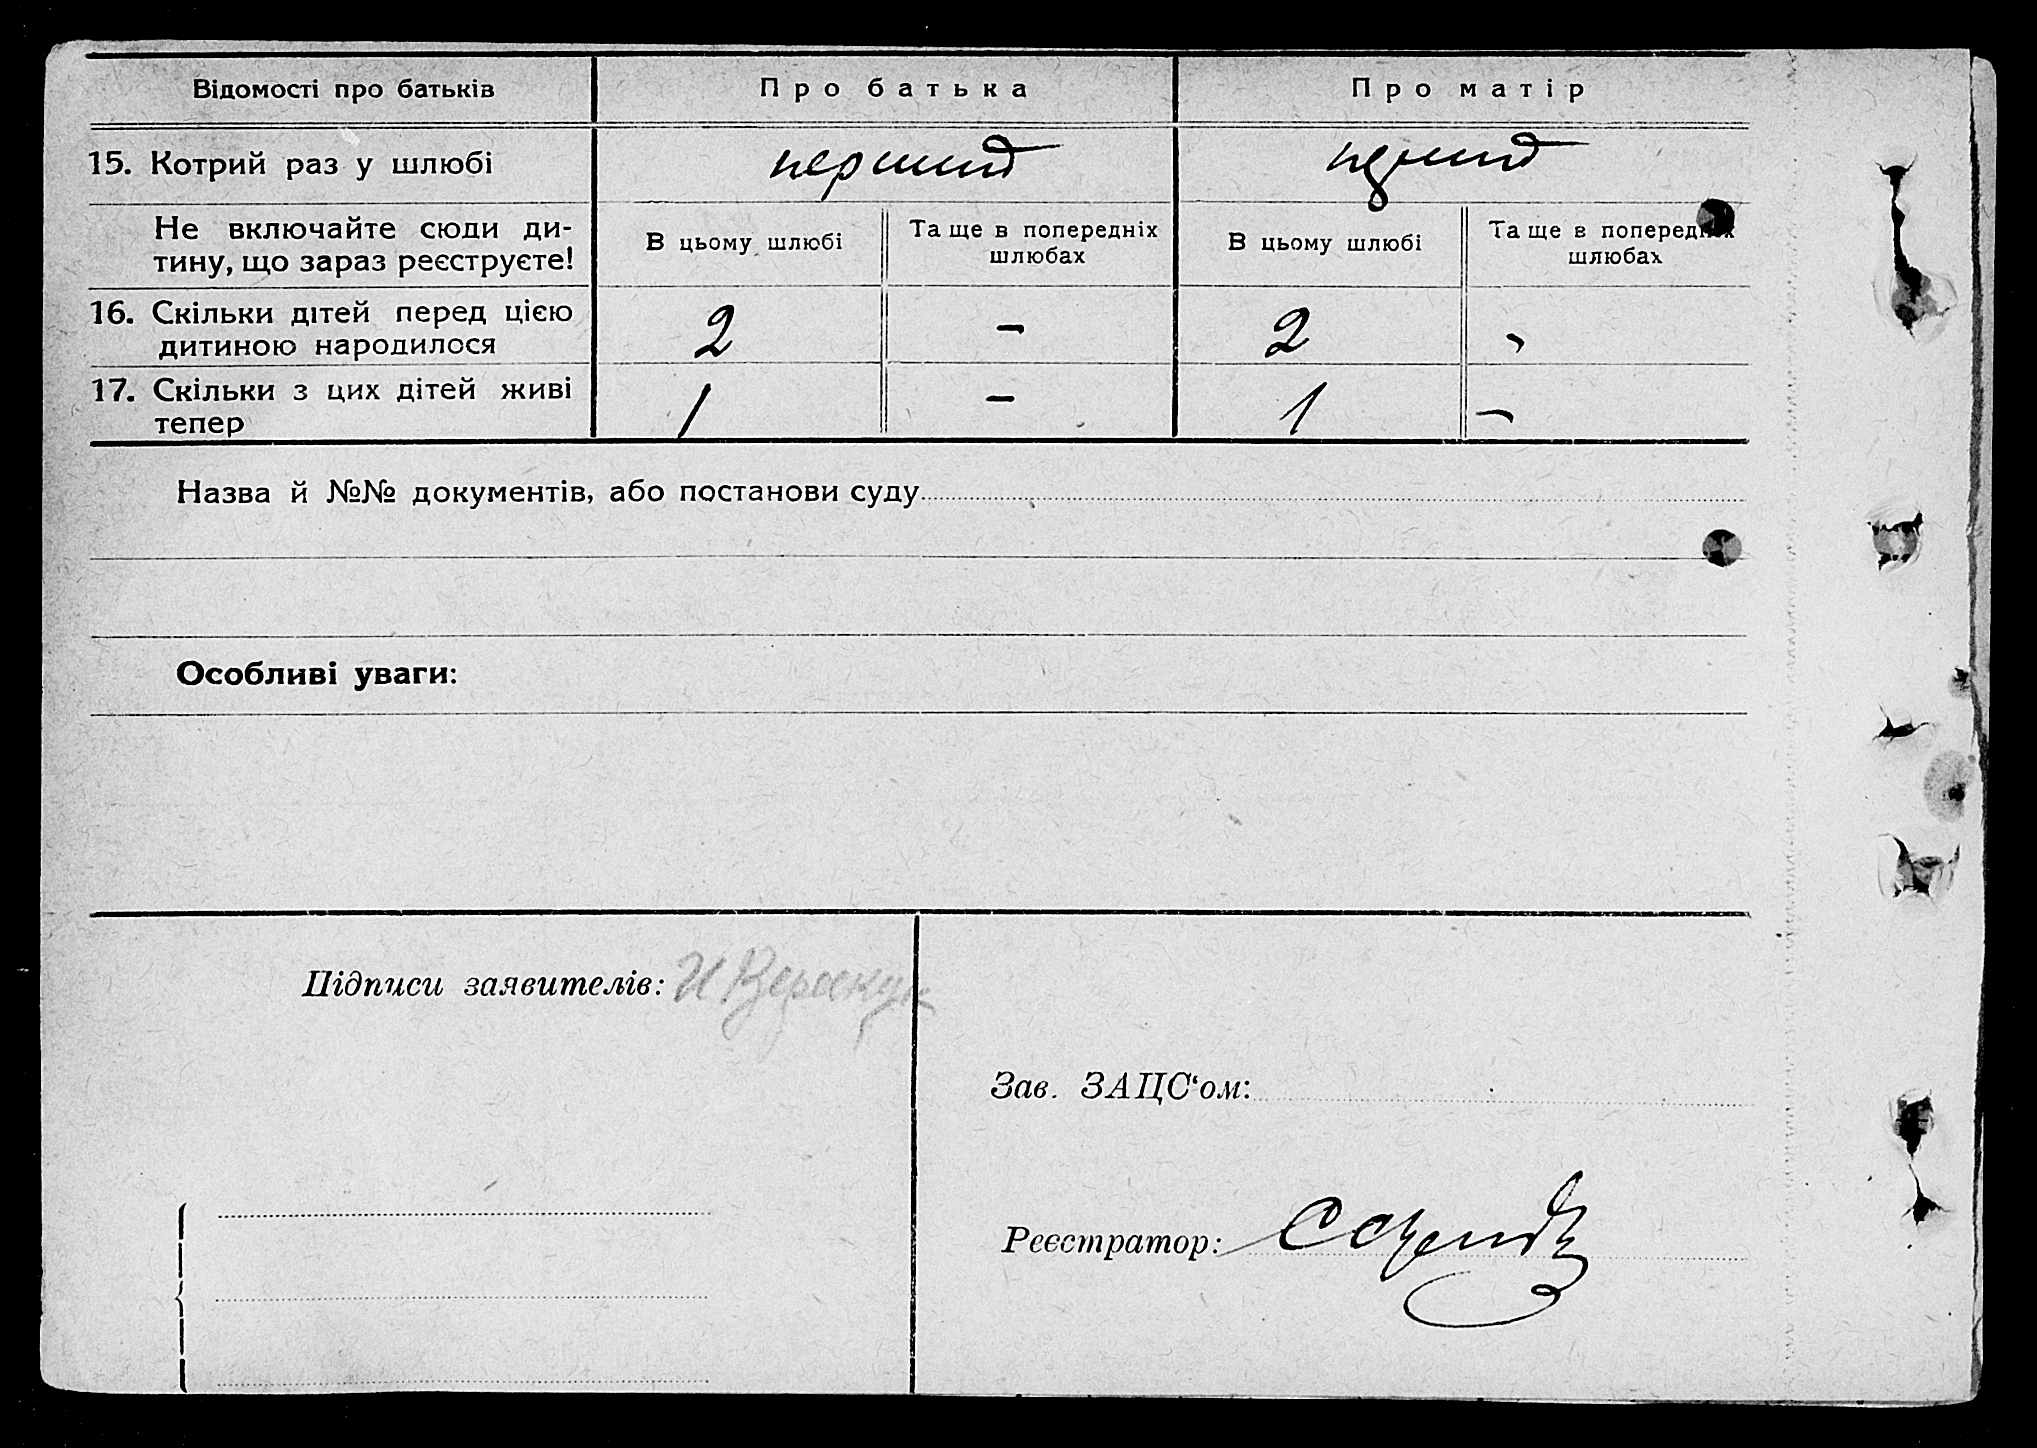 Відомості про батьків
Про батька
Про матір
15. Котрий раз у шлюбі
перший
перший
Не включайте сюди ди-
тину, що зараз реєструєте!
В цьому шлюбі
Та ще в попередніх
шлюбах
В цьому шлюбі
Та ще в попередніх
шлюбах
16. Скільки дітей перед цією
дитиною народилося
2
-
2
-
17. Скільки з цих дітей живі
тепер
1
-
1
-
Назва й №№ документів, або постанови суду
Особливі уваги:
Підписи заявителів:
Зав. ЗАЦС‘ом:
Реєстратор: